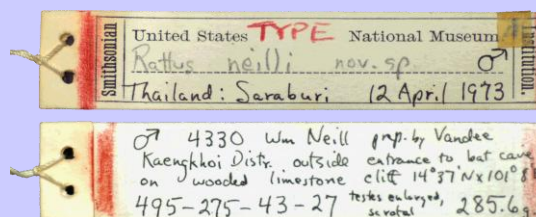 United States TYPE National Museum
Smithsonian
Institution.
Rattus neilli nov. sp. ♂
Thailand: Saraburi 12 April 1973
♂ 4330 Wm Neill prep. by Vandee
Kaengkhoi Distr. outside entrance to bat cave
on wooded limestone cliff 14°37'N x 101°8'
495-275-43-27 testes enlarged, scrotal 285.6g